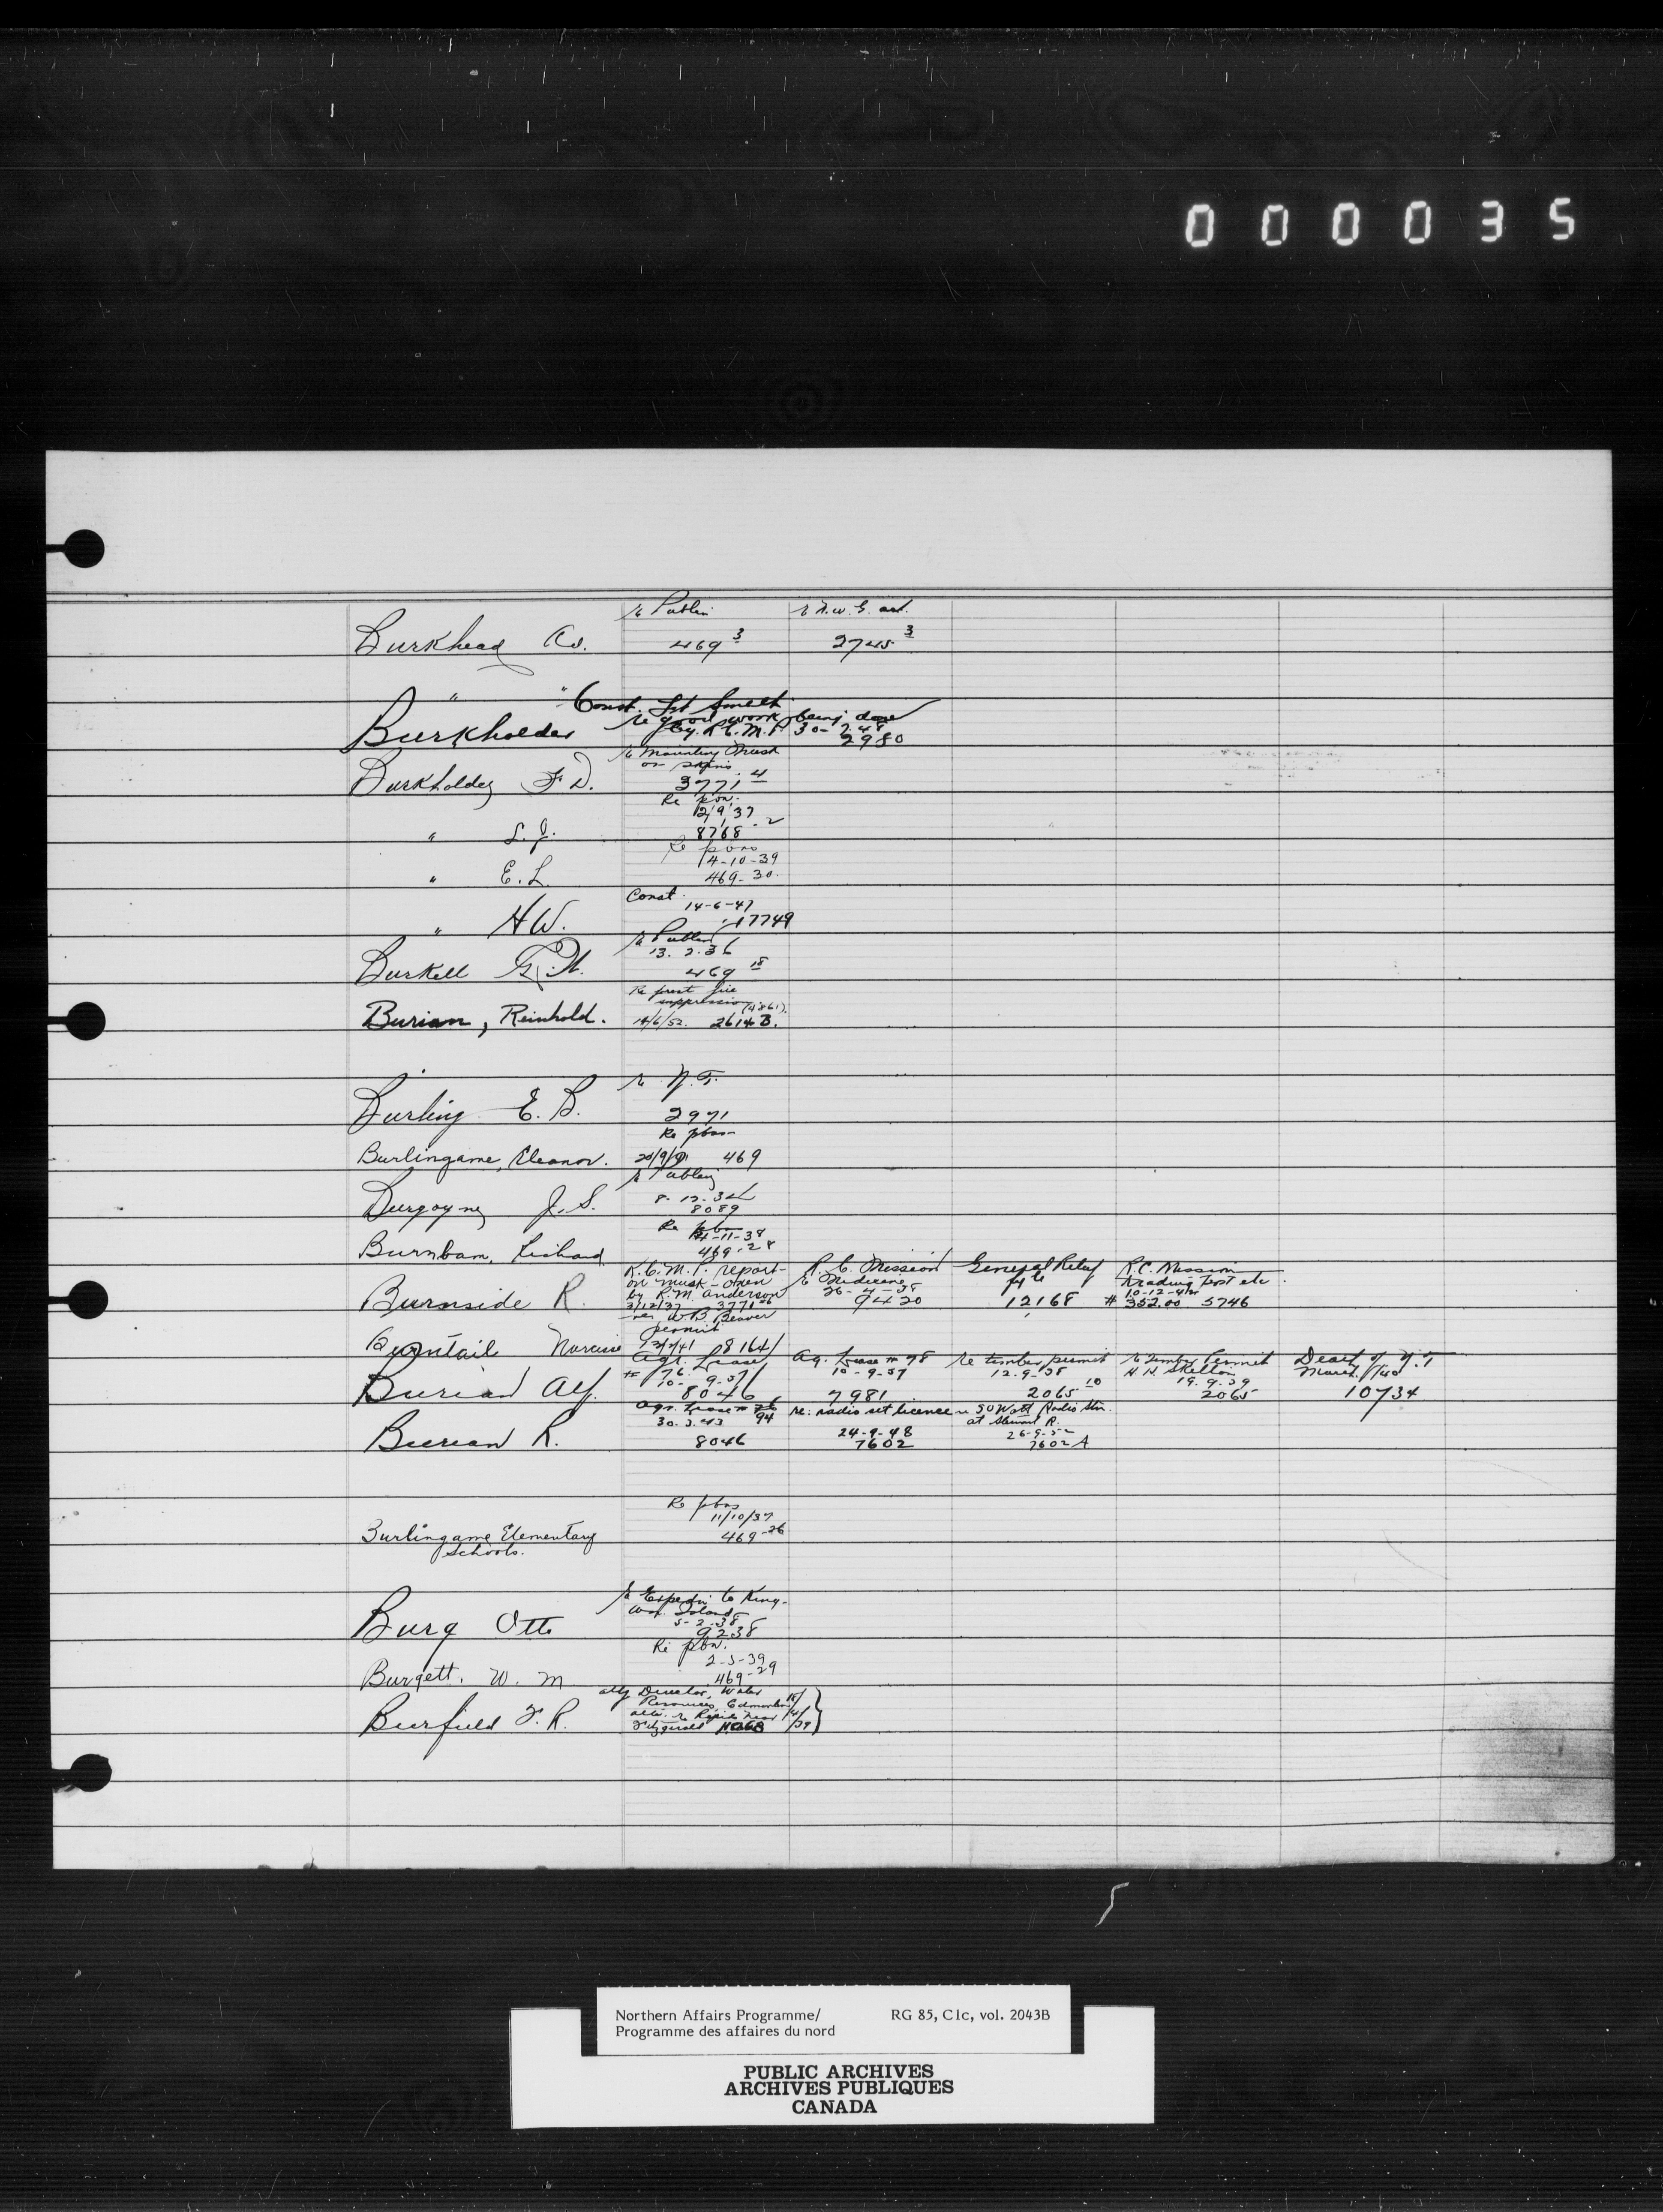 000035
re Publn re N.W.G. act.
Burkhead Co. 469 3 2745 3
" "
Const. Ft Smith
re good work being done
Burkholder by R.C.M.P 30- 7.48
2980
re Mounting
on skins
Burkholder F D. 3771 4
Re pbn.
2/9/37
" L.J. 8768-2
Re pbns
4-10-39
" E.L. 469-30.
Const.
14-6-47
" H W. 17749
re Publn
13. 2.36
Burkell G.H. 469 18
Re forest fire
suppression (4861).
Burian, Reinhold. 14/6/52. 2614 B.
re N.T.
Burling E. B. 2971
Re pbns
Burlingame, Eleanor. 469
re Publn
8. 12. 34
Burgoyne J. S. 8089
Re pbn
-11-38
Burnham, Richard 469-28
R.C.M.P. report R. C. Mission General Relief R.C. Mission
on musk-oxen re Medicine Trading Post etc.
by R.M. Anderson 10-12-
Burnside R. 3/12/37 3771 9420 12168 # 352.00 5746
W.B. Beaver
permit
Burntail Narcisse 8164
Agr. Lease Ag. Lease # 78 re timber permit re Timber Permit Death of N.T
# 76 10-9-37 12.9-38 H.H. Skelton March 1/40
10- 9-37 19.9.39
Burian Alf. 8046 7981 2065 10 2065 10734
Agr. Lease # 76 re: radio set licence re 50 Watt Radio Stn.
30.3.43 94 at Stewart R.
24-9-48 26-9-52
Burian R. 8046 7602 7602 A
Re pbns
11/10/37
Burlingame Elementary 469-26
Schools.
re Expedn to King
Wm. Island
5-2-38
Burg Otto 9238
Re pbn.
2-3-39
Burgett. W. M 469-29
Director, Water
Resources, Edmonton
Burfield F. R. re Rapids near
Fitzgerald
Northern Affairs Programme/ RG 85, C1c, vol. 2043B
Programme des affaires du nord
PUBLIC ARCHIVES
ARCHIVES PUBLIQUES
CANADA